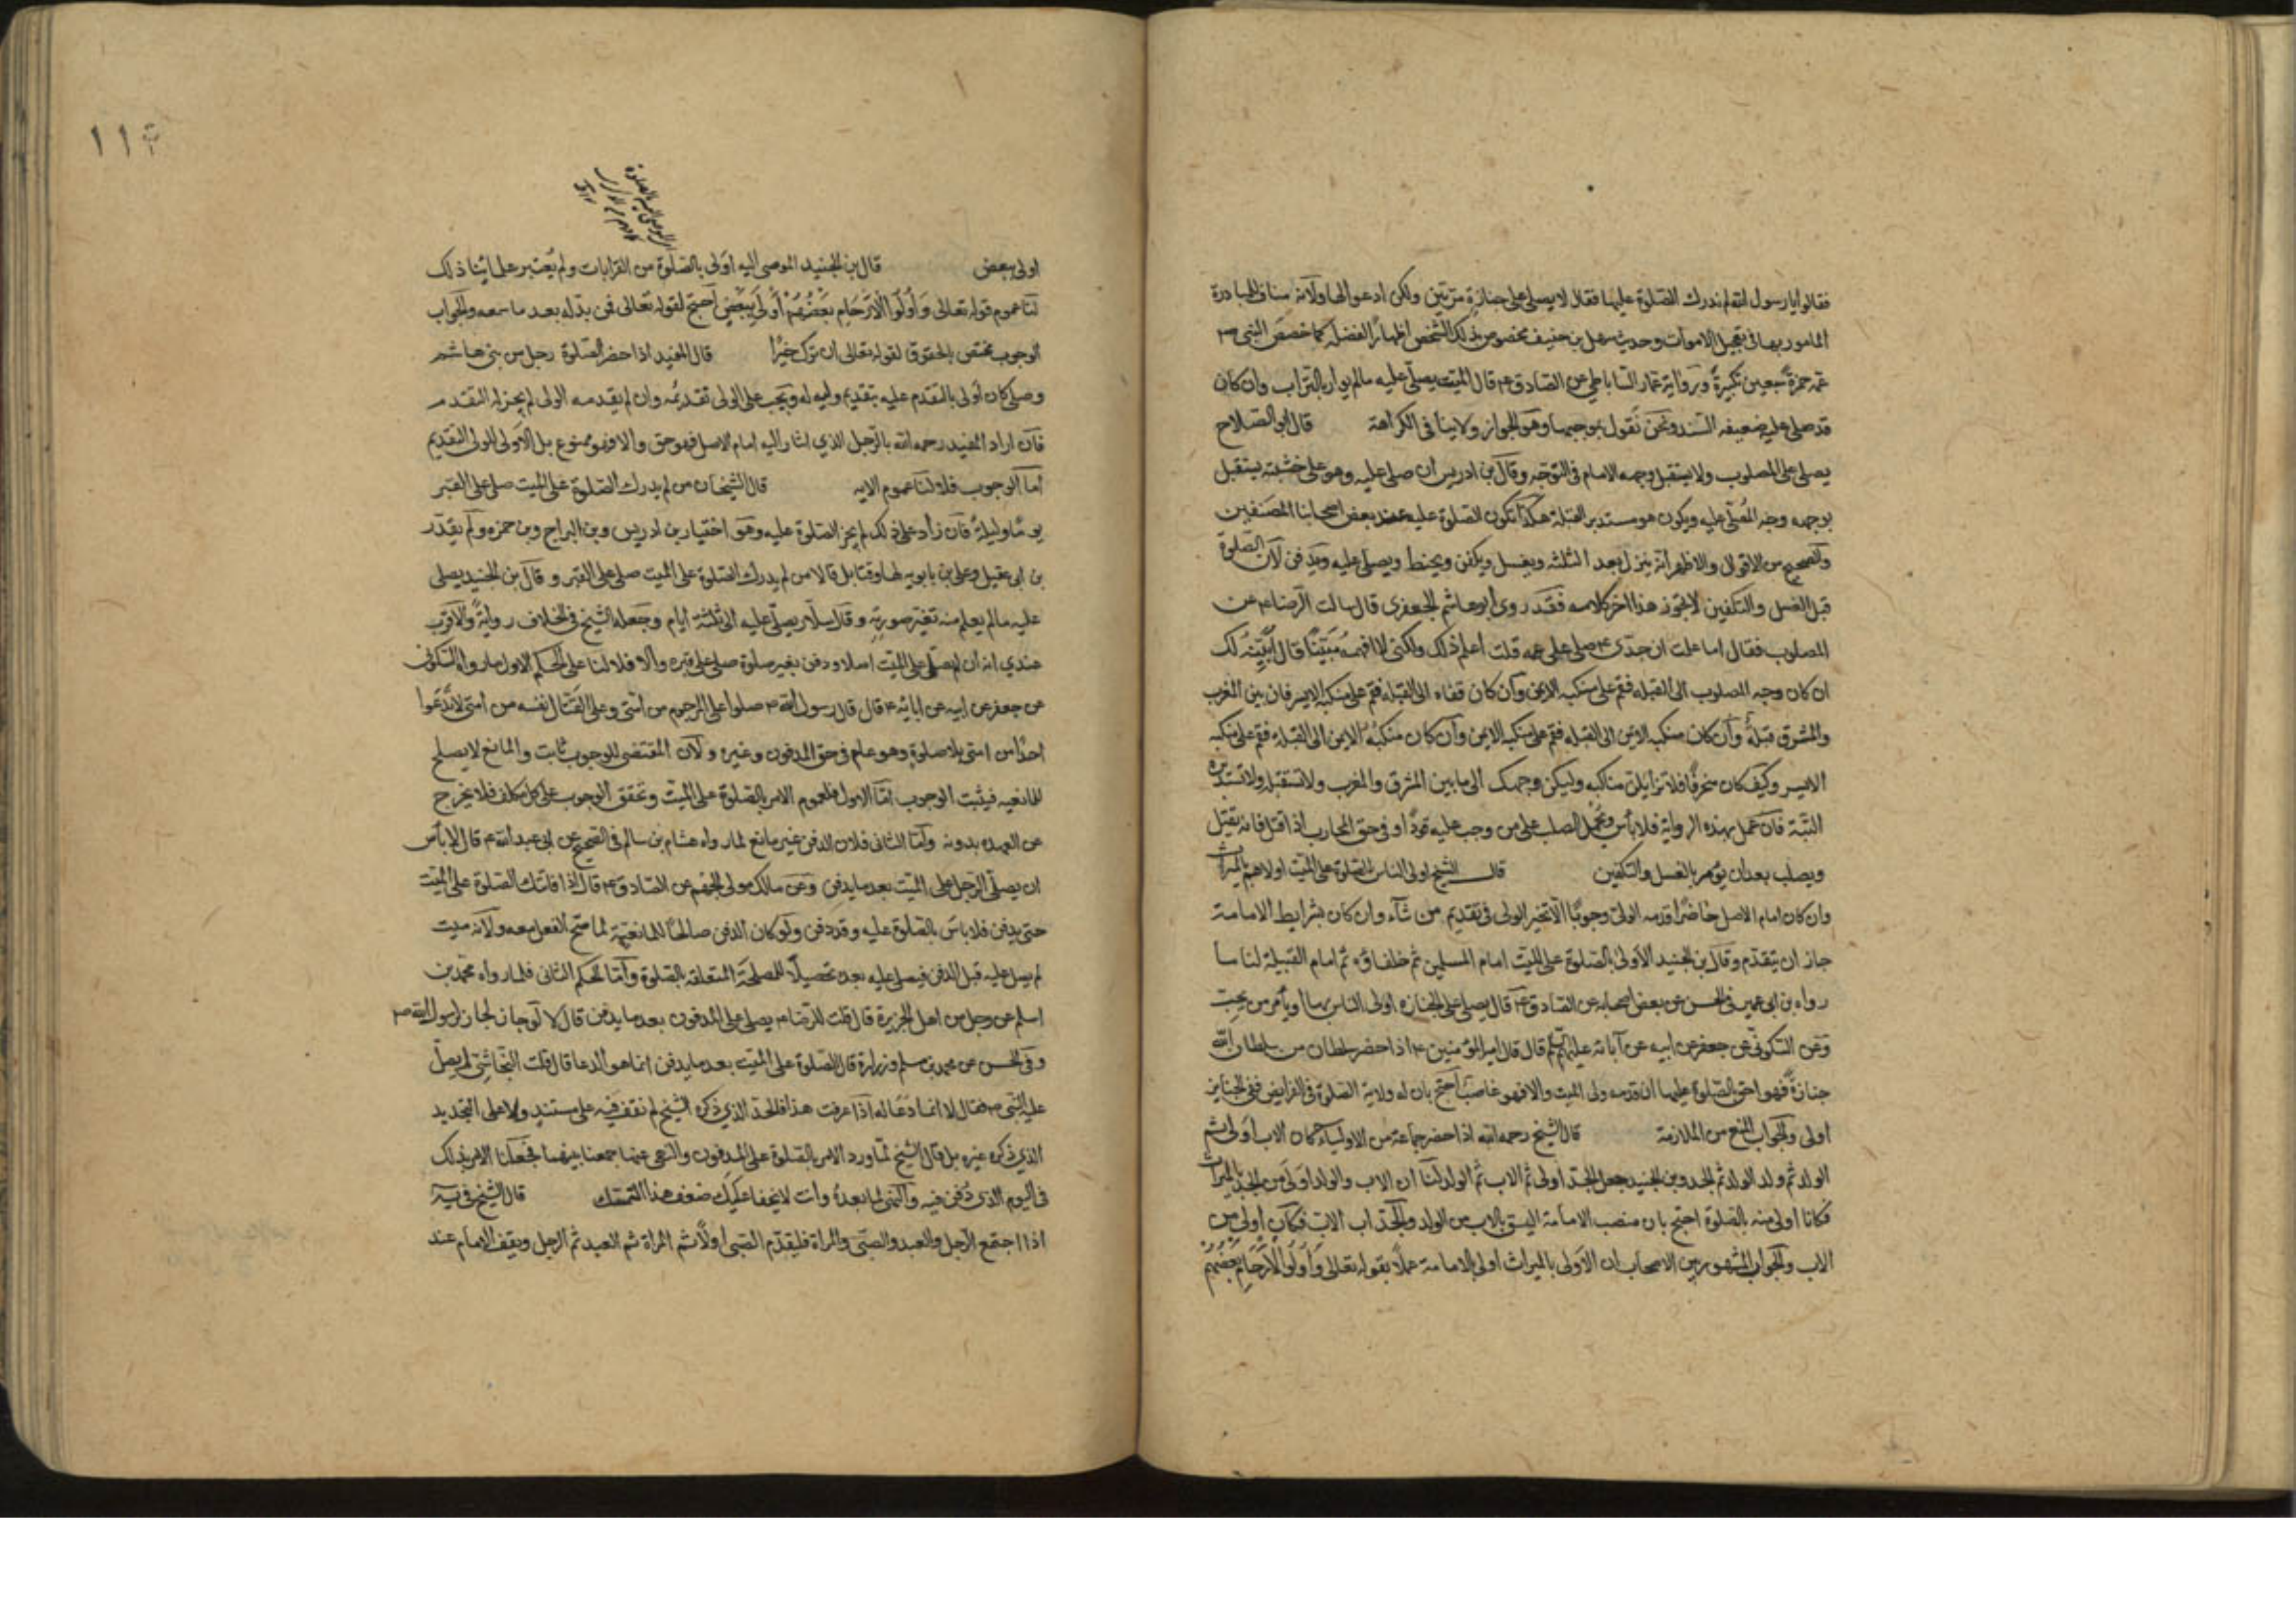 فقالوا يا رسول الله لم ندرك الصلوة عليها فقال لا يصلى على جنازة مرتين ولكن ادعوا لها ولانه مناف للمبادرة
المامور بها فى تعجيل الاموات وحديث سهل بن حنيف مخصوص بذلك الشخص اظهارا لفضله كما خصص النبى ص
عمه حمزة بسبعين تكبيرة وبرواية عمار الساباطى عن الصادق ع قال الميت يصلى عليه مالم يوار بالتراب وان كان
قد صلى عليه ضعيفه السند ونحن نقول بموجبها وهو الجواز ولا ينافى الكراهة قال ابو الصلاح
يصلى على المصلوب ولا يستقبل وجهه الامام فى التوجه وقال بن ادريس ان صلى عليه وهو على خشبته يستقبل
بوجهه وجه المصلى عليه ويكون هو مستدبر القبلة هكذا تكون الصلوة عليه عند بعض اصحابنا المصنفين
والصحيح من الاقوال والاظهر انه ينزل بعد الثلثه ويغسل ويكفن ويحنط ويصلى عليه ويدفن لان الصلوة
قبل الغسل والتكفين لا تجوز هذا اخر كلامه فقد روى ابو هاشم الجعفرى قال سالت الرضا ع عن
المصلوب فقال اما علمت ان جدى ع صلى على عمه قلت اعلم ذلك ولكنى لا افهمه مبينا قال ابينه لك
ان كان وجه المصلوب الى القبله فقم على منكبه الايمن وان كان قفاه الى القبله فقم على منكبه الايسر فان بين المغرب
والمشرق قبلة وان كان منكبه الايمن الى القبله فقم على منكبه الايمن وان كان منكبه الايمن الى القبلة فقم على منكبه
الايسر وكيف كان منحرفا فلا تزايلن مناكبه وليكن وجهك الى ما بين المشرق والمغرب ولا تستقبله ولا تستدبره
البتة فان عمل بهذه الرواية فلا باس ويحمل الصلب على من وجب عليه قودا او فى حق المحارب اذا قتل فانه يقتل
ويصلب بعد ان يؤمر بالغسل والتكفين قال الشيخ اولى الناس بالصلوة على الميت اولاهم بالميراث
وان كان امام الاصل حاضرا قدمه الولى وجوبا الا تخير الولى فى تقديم من شاء وان كان بشرايط الامامة
جاز ان يتقدم وقال بن الجنيد الاولى بالصلوة على الميت امام المسلمين ثم خلفاؤه ثم امام القبيلة لنا ما
رواه بن ابى عمير فى الحسن عن بعض اصحابه عن الصادق ع قال يصلى على الجنازه اولى الناس بها او يامر من يحب
وعن السكونى عن جعفر عن ابيه عن آبائه عليهم السلم قال قال امير المؤمنين ع اذا حضر سلطان من سلطان الله
جنازة فهو احق بالصلوة عليها ان قدمه ولى الميت والا فهو غاصب احتج بان له ولاية الصلوة فى الفرايض ففى الجنايز
اولى والجواب المنع من الملازمة قال الشيخ رحمه الله اذا حضر جماعة من الاولياء كان الاب اولى ثم
الولد ثم ولد الولد ثم الجد وبن الجنيد جعل الجد اولى ثم الاب ثم الولد لنا ان الاب والولد اولى من الجد بالميراث
فكانا اولى منه بالصلوة احتج بان منصب الامامة اليق بالاب من الولد والجد اب الاب فكان اولى من
الاب والجواب المشهور بين الاصحاب ان الاولى بالميراث اولى بالامامة عملا بقوله تعالى واولوا الارحام بعضهم
اولى ببعض قال بن الجنيد الموصى اليه اولى بالصلوة من القرابات ولم يعتبر علمائنا ذلك
لنا عموم قوله تعالى واولوا الارحام بعضهم اولى ببعض احتج لقوله تعالى فمن بدله بعد ما سمعه والجواب
الوجوب مختص بالحقوق لقوله تعالى ان ترك خيرا قال المفيد اذا حضر الصلوة رجل من بنى هاشم
وصلى كان اولى بالتقدم عليه بتقديم وليه له ويجب على الولى تقديمه وان لم يقدمه الولى لم يجز له التقدم
فان اراد المفيد رحمه الله بالرجل الذى اشار اليه امام الاصل فهو حق والا فهو ممنوع بل الاولى للولى التقديم
اما الوجوب فلا لنا عموم الايه قال الشيخان من لم يدرك الصلوة على الميت صلى على القبر
يوما وليلة فان زاد على ذلك لم يجز الصلوة عليه وهو اختيار بن ادريس وبن البراج وبن حمزه ولم يقدر
بن ابى عقيل وعلى بن بابويه لها وقتا بل قالا من لم يدرك الصلوة على الميت صلى على القبر وقال بن الجنيد يصلى
عليه مالم يعلم منه تغير صورته وقال سلار يصلى عليه الى ثلثة ايام وجعله الشيخ فى الخلاف رواية والاقرب
عندى انه ان لم يصل على الميت اصلا ودفن بغير صلوة صلى على قبره والا فلا لنا على الحكم الاول ما رواه السكونى
عن جعفر عن ابيه عن ابائه ع قال قال رسول الله ص صلوا على المرجوم من امتى وعلى القتال نفسه من امتى لا تدعوا
احدا من امتى بلا صلوة وهو عام فى حق المدفون وغيره ولان المقتضى للوجوب ثابت والمانع لا يصلح
للمانعيه فيثبت الوجوب اما الاول فلعموم الامر بالصلوة على الميت وتحقق الوجوب على كل مكلف فلا يخرج
عن العهده بدونه واما الثانى فلان الدفن غير مانع لما رواه هشام بن سالم فى الصحيح عن ابى عبد الله ع قال لا بأس
ان يصلى الرجل على الميت بعد ما يدفن وعن مالك مولى الجهم عن الصادق ع قال اذا فاتتك الصلوة على الميت
حتى يدفن فلا باس بالصلوة عليه وقد دفن ولو كان الدفن صالحا للمانعية لما صح الفعل معه ولانه ميت
لم يصل عليه قبل الدفن فيصلى عليه بعده تحصيلا للمصلحة المتعلقه بالصلوة واما الحكم الثانى فلما رواه محمد بن
اسلم عن رجل من اهل الجزيرة قال قلت للرضا ع يصلى على المدفون بعد ما يدفن قال لا لو جاز لجاز لرسول الله ص
وفى الحسن عن محمد بن مسلم وزرارة قال الصلوة على الميت بعد ما يدفن انما هو الدعا قال قلت النجاشى لم يصل
عليه النبى ص فقال لا انما دعا له اذا عرفت هذا فالحد الذى ذكره الشيخ لم نقف فيه على مستند ولا على التحديد
الذى ذكره غيره بل قال الشيخ لما ورد الامر بالصلوة على المدفون والنهى عنها جمعنا بينهما فجعلنا الامر بذلك
فى اليوم الذى دفن فيه والنهى لما بعده وانت لا يخفا عليك ضعف هذا التمسك قال الشيخ فى يه
اذا اجتمع الرجل والعبد والصبى والمراة فليقدم الصبى اولا ثم المراة ثم العبد ثم الرجل ويقف الامام عند